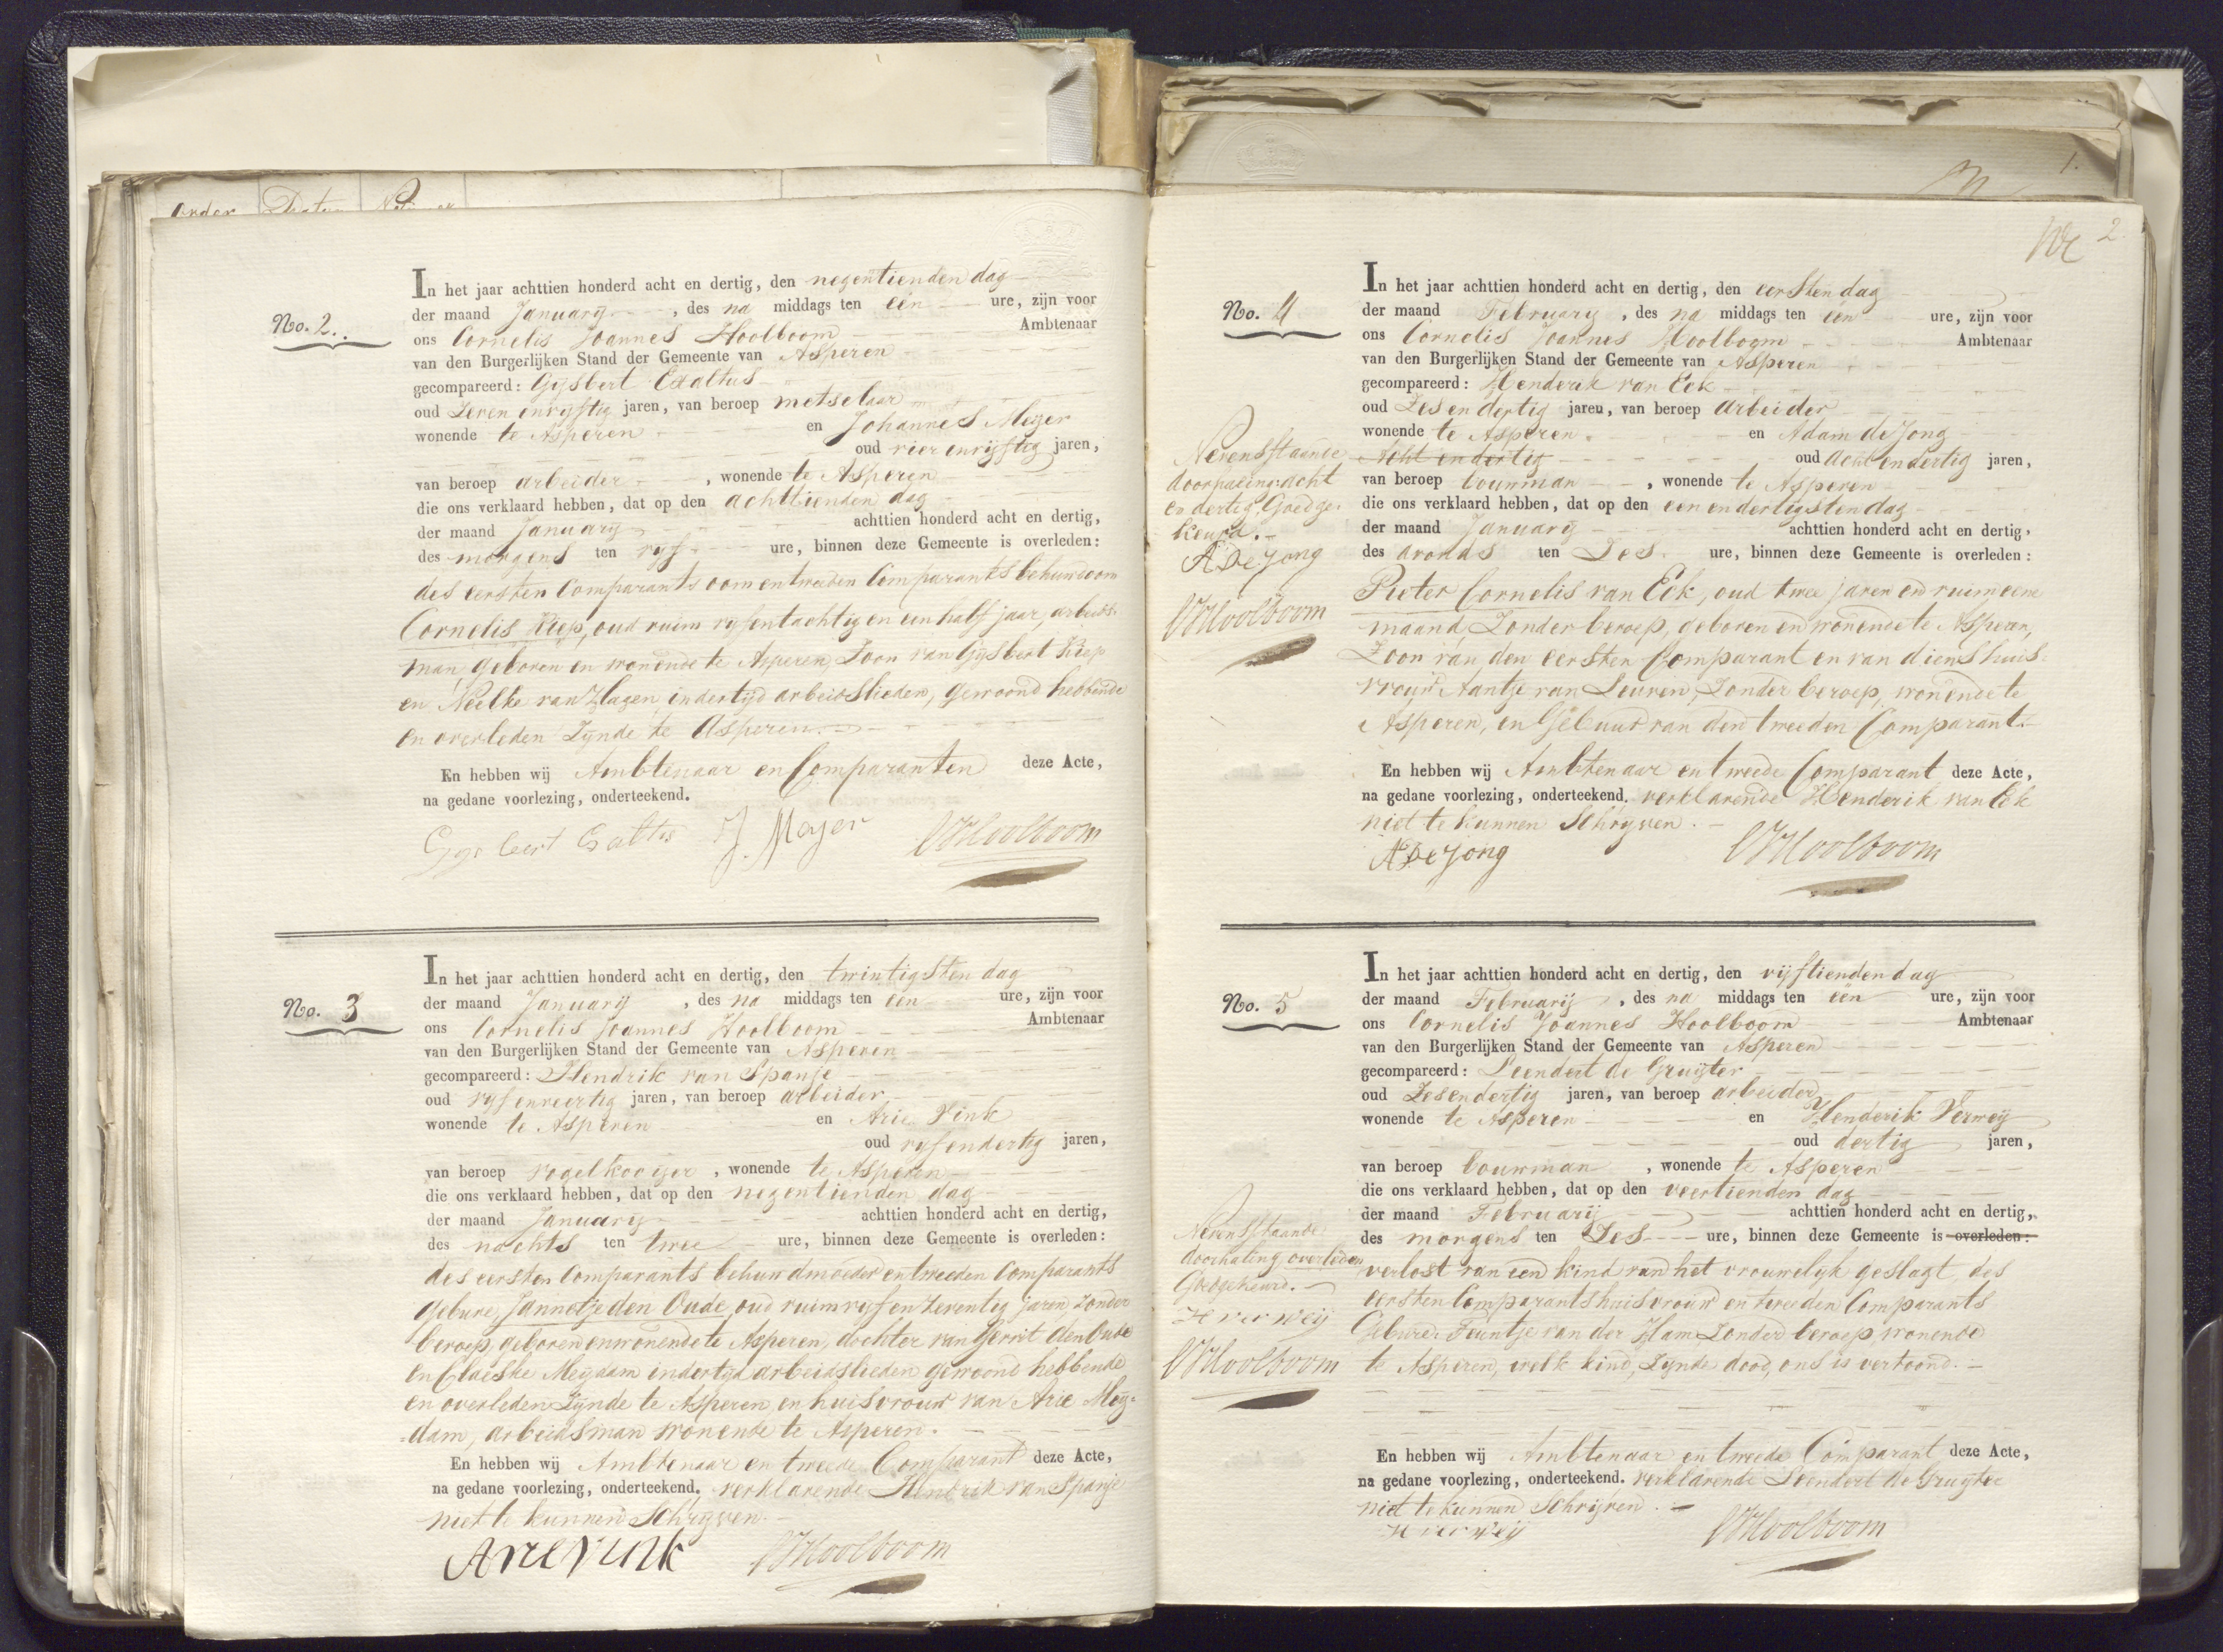 Order Datum
No. 2.
In het jaar achttien honderd acht en dertig, den negentienden dag
der maand Januarij, des na middags ten een ure, zijn voor
ons Cornelis Joannes Hoolboom Ambtenaar
van den Burgerlijken Stand der Gemeente van Asperen
gecompareerd: Gijsbert Exaltus
oud Zeven envijftig jaren, van beroep metselaar
wonende te Asperen en Johannes Meijer
oud vier envijftig jaren,
van beroep arbeider, wonende te Asperen
die ons verklaard hebben, dat op den achttienden dag
der maand Januarij achttien honderd acht en dertig,
des morgens ten vijf ure, binnen deze Gemeente is overleden:
des eersten Comparants oom en tweeden Comparants behuwdoom
Cornelis Kiep, oud ruim vijfentachtig en een half jaar, arbeids-
man, geboren en wonende te Asperen, Zoon van Gijsbert Kiep
en Neelke van Hagen, in dertijd arbeidslieden, gewoond hebbende
en overleden Zijnde te Asperen.
En hebben wij Ambtenaar en Comparanten deze Acte,
na gedane voorlezing, onderteekend.
Gijsbert Exaltus J. Meijer CJHoolboom
No. 3
In het jaar achttien honderd acht en dertig, den twintigsten dag
der maand Januarij, des na middags ten een ure, zijn voor
ons Cornelis Joannes Hoolboom Ambtenaar
van den Burgerlijken Stand der Gemeente van Asperen
gecompareerd: Hendrik van Spanje
oud vijf enveertig jaren, van beroep arbeider
wonende te Asperen en Arie Vink
oud vijfendertig jaren,
van beroep vogelkooijer, wonende te Asperen
die ons verklaard hebben, dat op den negentienden dag
der maand Januarij achttien honderd acht en dertig,
des nachts ten twee ure, binnen deze Gemeente is overleden:
des eersten Comparants behuwdmoeder en tweeden Comparants
gebure, Jannetje den Oude, oud ruim vijf en Zeventig jaren Zonder
beroep, geboren en wonende te Asperen, dochter van Gerrit den Oude
en Claeske Meijdam in dertijd arbeidslieden gewoond hebbende
en overleden Zijnde te Asperen en huisvrouw van Arie Meij=
=dam, arbeidsman wonende te Asperen.
En hebben wij Ambtenaar en tweede Comparant deze Acte,
na gedane voorlezing, onderteekend. verklarende Hendrik van Spanje
niet te kunnen Schrijven.
Arie Vink CJHoolboom
1.
2.
No. 4
In het jaar achttien honderd acht en dertig, den eersten dag
der maand February, des na middags ten een ure, zijn voor
ons Cornelis Joannes Hoolboom Ambtenaar
van den Burgerlijken Stand der Gemeente van Asperen
gecompareerd: Henderik van Eck
oud Zes en dertig jaren, van beroep arbeider
wonende te Asperen en Adam de Jong
Acht en dertig oud acht en dertig jaren,
van beroep bouwman, wonende te Asperen
die ons verklaard hebben, dat op den een en dertigsten dag
der maand Januarij achttien honderd acht en dertig,
des avonds ten Zes ure, binnen deze Gemeente is overleden:
Pieter Cornelis van Eck, oud twee jaren en ruim eene
maand, Zonder beroep, geboren en wonende te Asperen,
Zoon van den eersten Comparant en van diens huis-
vrouw Aantje van Leuven, Zonder beroep, wonende te
Asperen, en Gebuur van den tweeden Comparant.
En hebben wij Ambtenaar en tweede Comparant deze Acte,
na gedane voorlezing, onderteekend. verklarende Henderik van Eck
niet te kunnen Schrijven.
A De Jong CJHoolboom
Nevenstaande
doorhaling acht
en dertig Goedge-
keurd.
A De Jong
CJHoolboom
No. 5
In het jaar achttien honderd acht en dertig, den vijftienden dag
der maand Februarij, des na middags ten een ure, zijn voor
ons Cornelis Joannes Hoolboom Ambtenaar
van den Burgerlijken Stand der Gemeente van Asperen
gecompareerd: Leendert de Gruijter
oud Zesendertig jaren, van beroep arbeider
wonende te Asperen en Henderik Verweij
oud dertig jaren,
van beroep bouwman, wonende te Asperen
die ons verklaard hebben, dat op den veertienden dag
der maand Februarij achttien honderd acht en dertig,
des morgens ten Zes ure, binnen deze Gemeente is overleden:
verlost van een kind van het vrouwelijk geslagt, des
eersten Comparants huisvrouw en tweeden Comparants
Gebure Teuntje van der Ham Zonder beroep wonende
te Asperen, welk kind, Zijnde dood, ons is vertoond.
En hebben wij Ambtenaar en tweede Comparant deze Acte,
na gedane voorlezing, onderteekend. verklarende Leendert de Gruijter
niet te kunnen Schrijven.
H verweij CJHoolboom
Nevenstaande
doorhaling overleden
Goedgekeurd.
H verweij
CJHoolboom